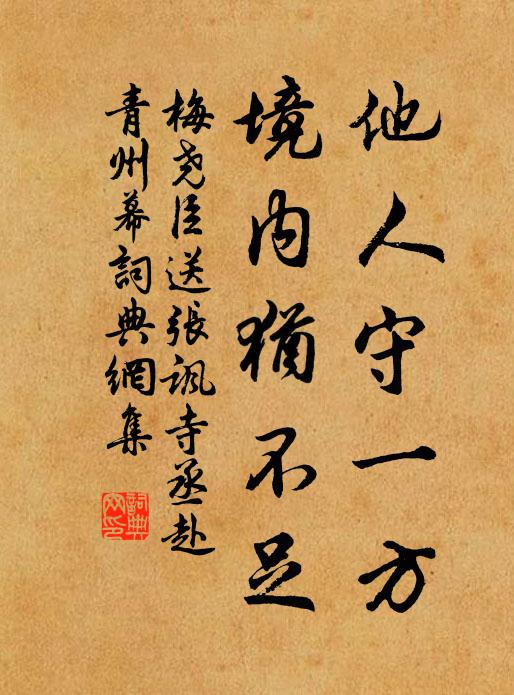 他人守一方
境内猶不足
梅尧臣送張諷寺丞赴
青州幕詞典網集
詞典網印